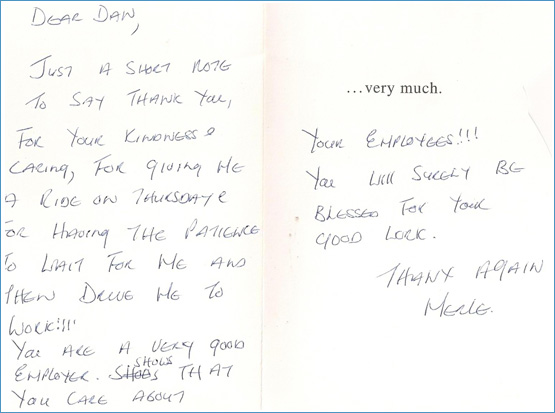 DEAR DAN,
JUST A SHORT NOTE
TO SAY THANK YOU,
FOR YOUR KINDNESS &
CARING, FOR GIVING ME
A RIDE ON THURSDAY &
FOR HAVING THE PATIENCE
TO WAIT FOR ME AND
THEN DRIVE ME TO
WORK!!!!
YOU ARE A VERY GOOD
EMPLOYER. SHOWS THAT
YOU CARE ABOUT
...very much.
YOUR EMPLOYEES!!!
YOU WILL SURELY BE
BLESSED FOR YOUR
GOOD WORK.
THANX AGAIN
MERLE.